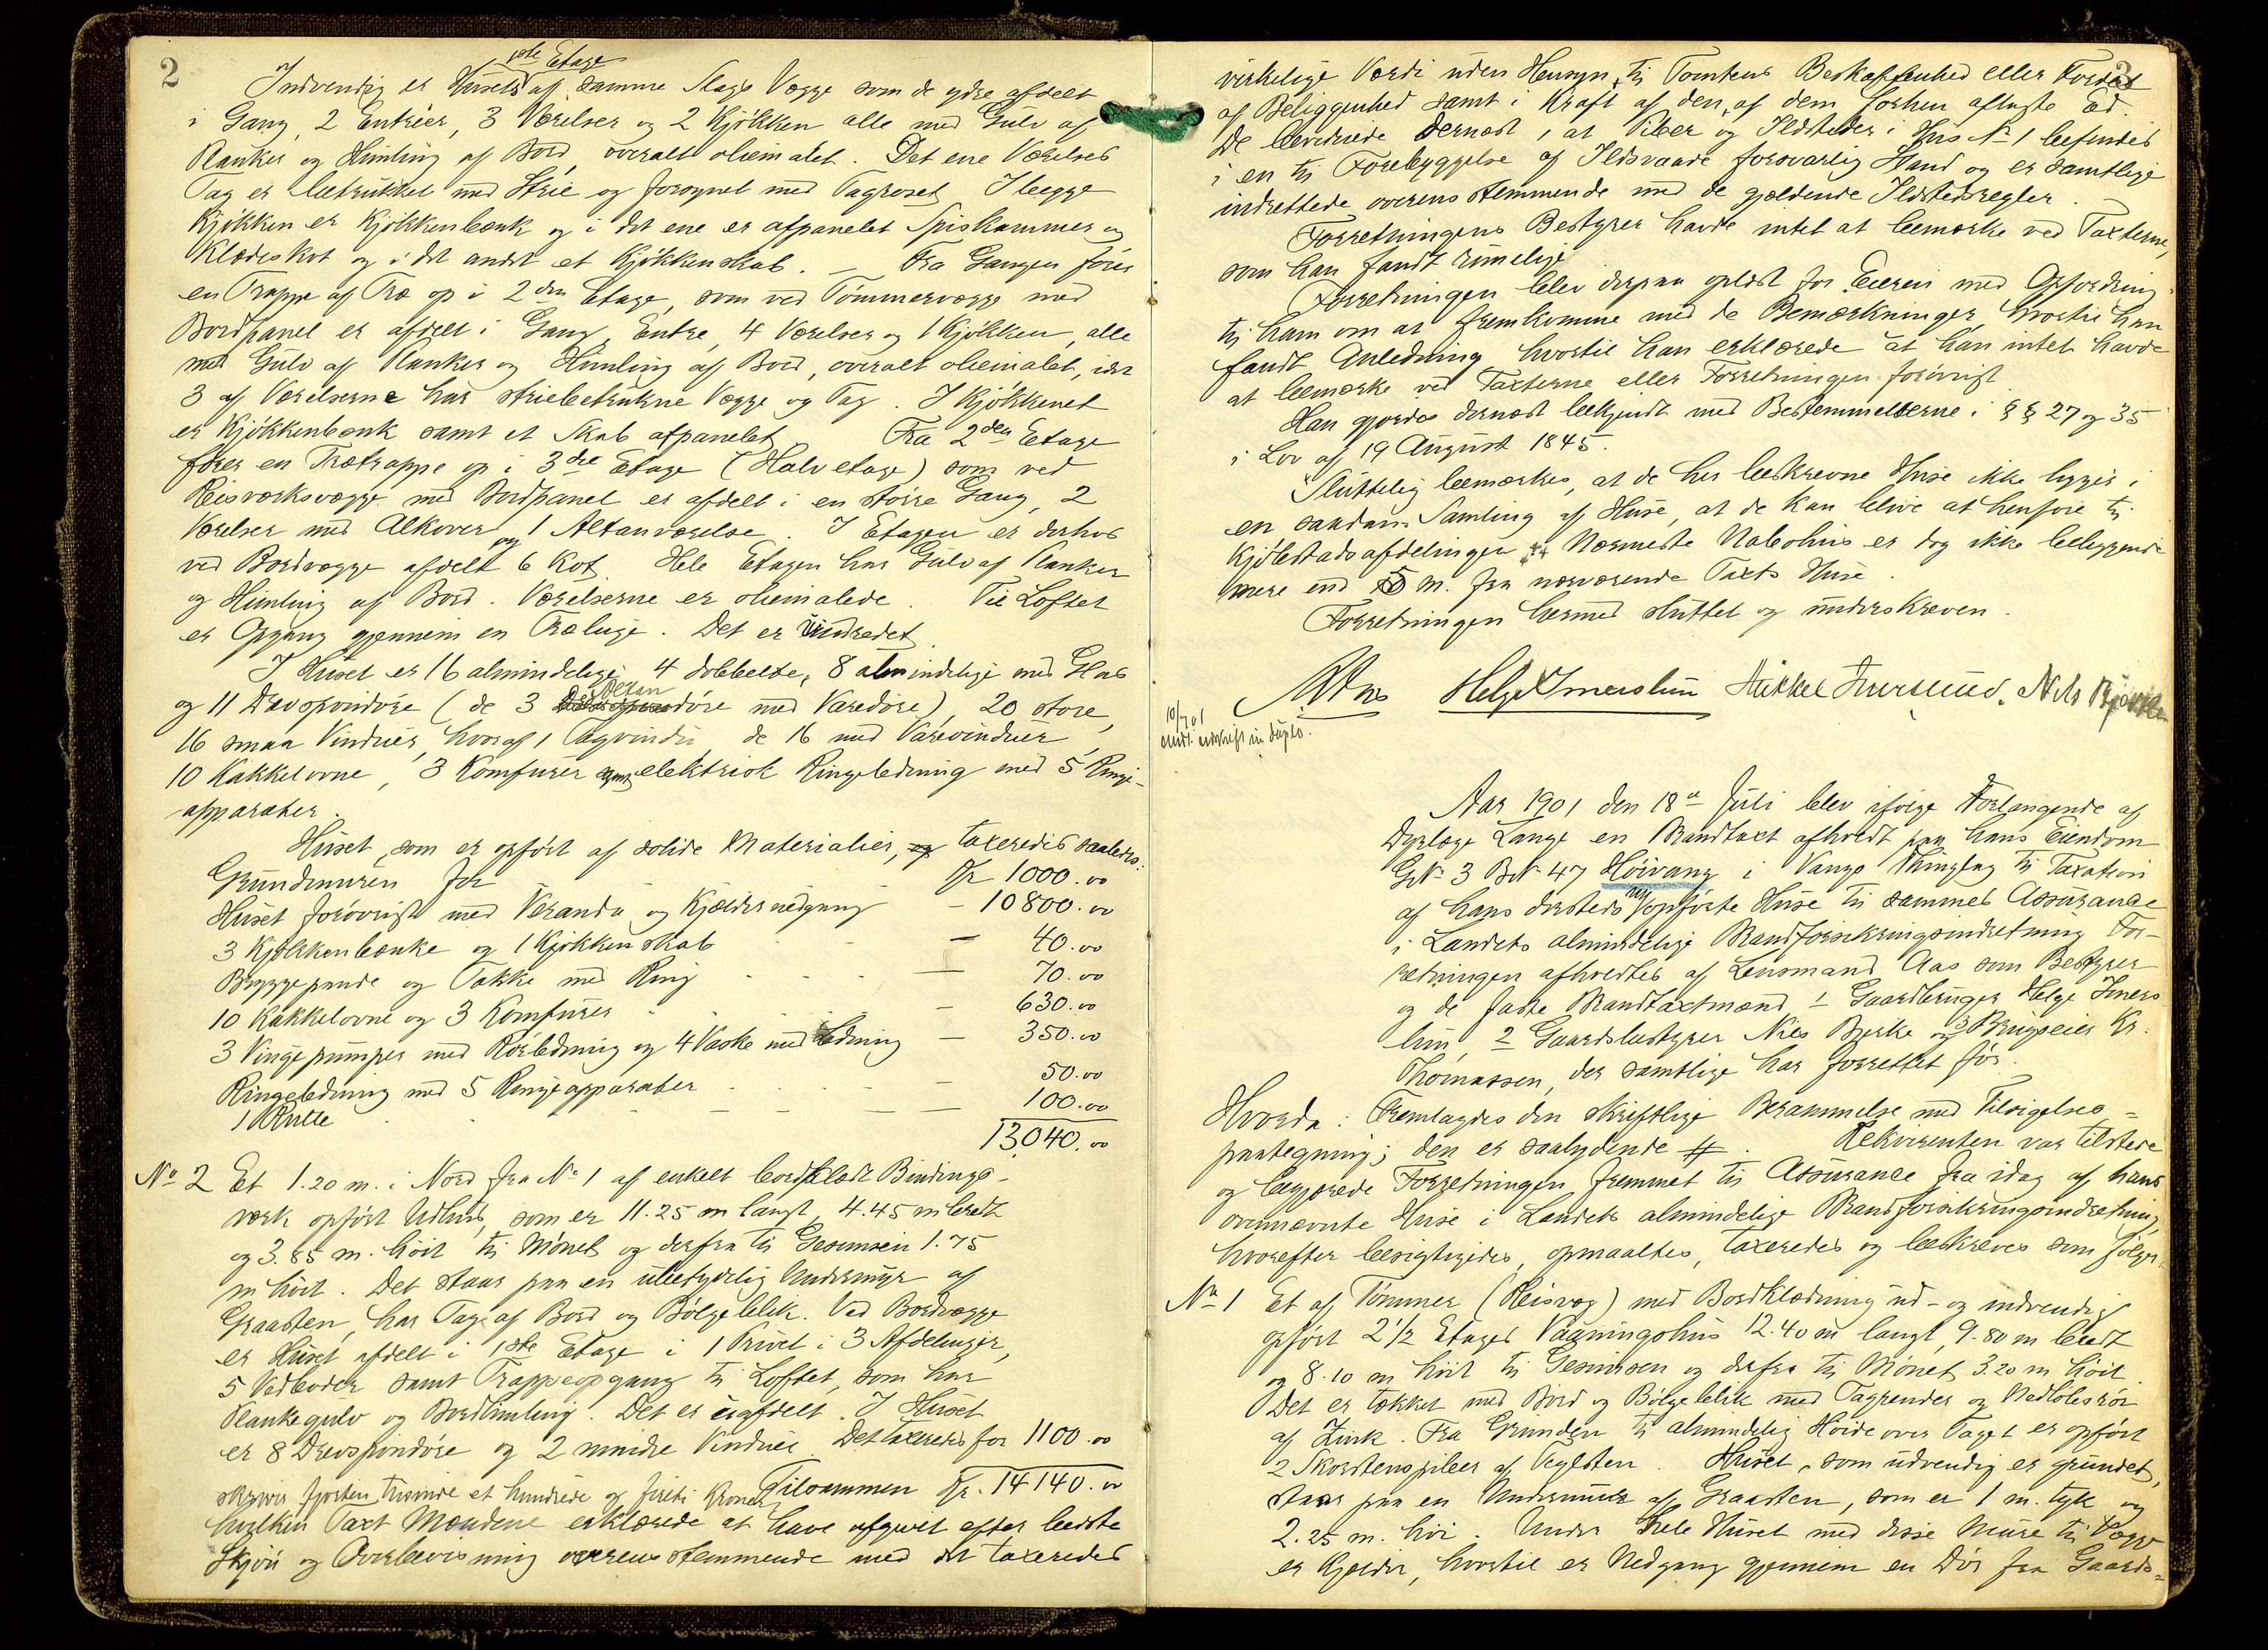 2
1ste Etage
Indvendig er Husets af samme Slags Vægge som de ydre afdelt
i Gang, 2 Entréer, 3 Værelser og 2 Kjøkken alle med Gulv af
Planker og Himling af Bord, overalt oliemalet. Det ene Værelses
Tag er betrukket med Strie og forsynet med Tagroset. I begge
Kjøkken er Kjøkkenbænk og i det ene er afpanelet Spiskammer og
Klædeskot og i det andet et Kjøkkenskab. — Fra Gangen fører
en Trappe af Træ op i 2den Etage, som ved Tømmervægge med
Bordpanel er afdelt i Gang, Entre, 4 Værelser og 1 Kjøkken, alle
med Gulv af Planker og Himling af Bord, overalt oliemalet, idet
3 af Værelserne har striebetrukne Vægge og Tag. I Kjøkkenet
er Kjøkkenbænk samt et Skab afpanelet. Fra 2den Etage
fører en Trætrappe op i 3die Etage (Halvetage) som ved
Reisværksvægge med Bordpanel er afdelt i en større Gang, 2
Værelser med Alkover og 1 Altanværelse. I Etagen er derhos
ved Bordvægge afdelt 6 Kot. Hele Etagen har Gulv af Planker
og Himling af Bord. Værelserne er oliemalede. Til Loftet
er Opgang gjennem en Træluge. Det er uindredet.
I Huset er 16 almindelige, 4 dobbelte, 8 almindelige med Glas
og 11 Drevspeildøre (de 3 Altandøre med Varedøre), 20 store,
16 smaa Vinduer, hvoraf 1 Tagvindu, de 16 med Varevinduer,
10 Kakkelovne, 3 Komfurer samt elektrisk Ringeledning med 5 Ringe-
apparater.
Huset, som er opført af solide Materialier, og taxeredes saaledes:
Grundmuren for Kr 1000.00
Huset forøvrigt med Veranda og Kjældernedgang — 10800.00
3 Kjøkkenbænke og 1 Kjøkkenskab — 40.00
Bryggepande og Takke med Ring — 70.00
10 Kakkelovne og 3 Komfurer — 630.00
3 Vingepumper med Rørledning og 4 Vaske med Ledning — 350.00
Ringeledning med 5 Ringeapparater — 50.00
1 Rulle — 100.00
13,040.00
No 2 Et 1.20 m. i Nord fra No 1 af enkelt bordklædt Bindings-
værk opført Udhus, som er 11.25 m langt, 4.45 m bredt
og 3.85 m. høit til Mønet og derfra til Gesimsen 1.75
m høit. Det staar paa en ubetydelig Undermur af
Graasten, har Tag af Bord og Bølgeblik. Ved Bordvægge
er Huset afdelt i 1ste Etage i 1 Privet i 3 Afdelinger,
5 Vedboder samt Trappeopgang til Loftet, som har
Plankegulv og Bordhimling. Det er uafdelt. I Huset
er 8 Drevspeildøre og 2 mindre Vinduer. Det taxeredes for 1100.00
Tilsammen Kr. 14140.00
skriver fjorten tusinde et hundrede og firti Kroner
hvilken Taxt Mændene erklærede at have afgivet efter bedste
Skjøn og Overbevisning overensstemmende med det taxeredes
3
virkelige Værdi uden Hensyn til Tomtens Beskaffenhed eller Fordel
af Beliggenhed samt i Kraft af den af dem forhen aflagte Ed.
De bevidnede dernæst, at Piber og Ildsteder i Hus No 1 befindes
i en til Forebyggelse af Ildsvaade forsvarlig Stand og er samtlige
indrettede overensstemmende med de gjældende Ildstedsregler.
Forretningens Bestyrer havde intet at bemærke ved Taxterne,
som han fandt rimelige.
Forretningen blev derpaa oplæst for Eieren med Opfordring
til ham om at fremkomme med de Bemærkninger, hvortil han
fandt Anledning, hvortil han erklærede at han intet havde
at bemærke ved Taxterne eller Forretningen forøvrigt.
Han gjordes dernæst bekjendt med Bestemmelserne i §§ 27 og 35
i Lov af 19 August 1845.
Sluttelig bemærkes, at de her beskrevne Huse ikke ligger i
en saadan Samling af Huse, at de kan blive at henføre til
Kjøbstadsafdelingen. Nærmeste Nabohus er dog ikke beliggende
mere end 5 m. fra nærværende Taxts Huse.
Forretningen hermed sluttet og underskreven.
Helge Imerslun Mikkel
10/7 01
udskrift in duplo.
Aar 1901 den 18de Juli blev ifølge Forlangende af
Dyrlæge Lange en Brandtaxt afholdt paa hans Eiendom
GNo 3 BNo 47 Høivang i Vangs Thinglag til Taxation
af hans dersteds nyopførte Huse til sammes Assurance
i Landets almindelige Brandforsikringsindretning. For-
retningen afholdtes af Lensmand Aas som Bestyrer
og de faste Brandtaxtmænd 1 Gaardbruger Helge Imers
lun, 2 Gaardsbestyrer Nils Bjerke og 3 Brugseier Kr.
Thomassen, der samtlige har forrettet før.
Hvorda: Fremlagdes den skriftlige Berammelse med Tilsigelses-
paategning; den er saalydende #. Rekvirenten var tilstede
og begjærede Forretningen fremmet til Assurance fra idag af hans
ovennævnte Huse i Landets almindelige Brandforsikringsindretning,
hvorefter besigtigedes, opmaaltes, taxeredes og beskreves som følger:
No 1 Et af Tømmer (Reisvæg) med Bordklædning ud- og indvendig
opført 2 1/2 Etages Vaaningshus 12.40 m langt, 9.80 m bredt
og 8.10 m høit til Gesimsen og derfra til Mønet 3.20 m høit.
Det er tækket med Bord og Bølgeblik med Tagrender og Nedløbsrør
af Zink. Fra Grunden til almindelig Høide over Taget er opført
2 Skorstenspiber af Teglsten. Huset, som udvendig er grundet,
staar paa en Undermur af Graasten, som er 1 m. tyk og
2.25 m. høi. Under hele Huset med disse Mure til Vægge
er Kjelder, hvortil er Nedgang gjennem en Dør fra Gaards-